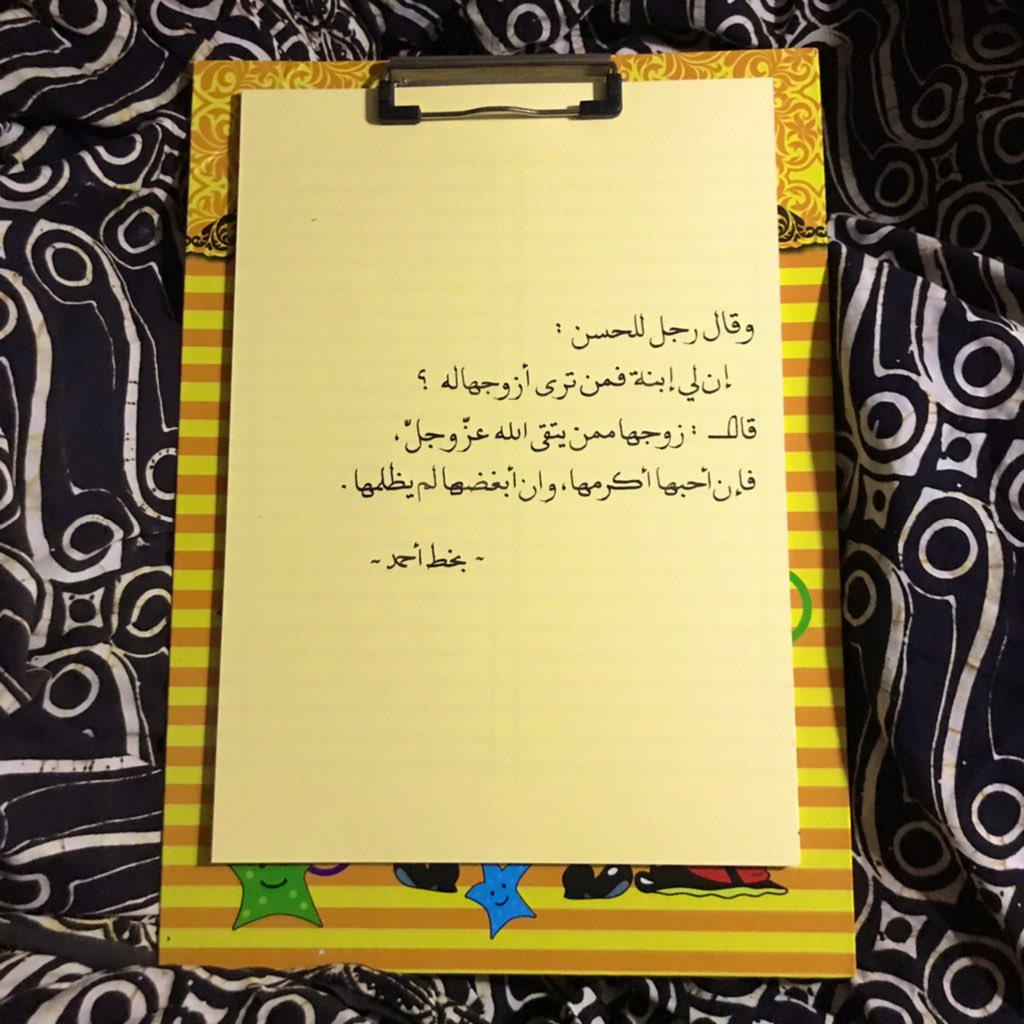 وقال رجل للحسن :
إن لي إبنة فمن ترى أزوجها له ؟
قال : زوجها ممن يتقى الله عزّ وجلّ ،
فإن أحبها أكرمها ، وان أبغضها لم يظلمها .
~ بخط أحمد ~